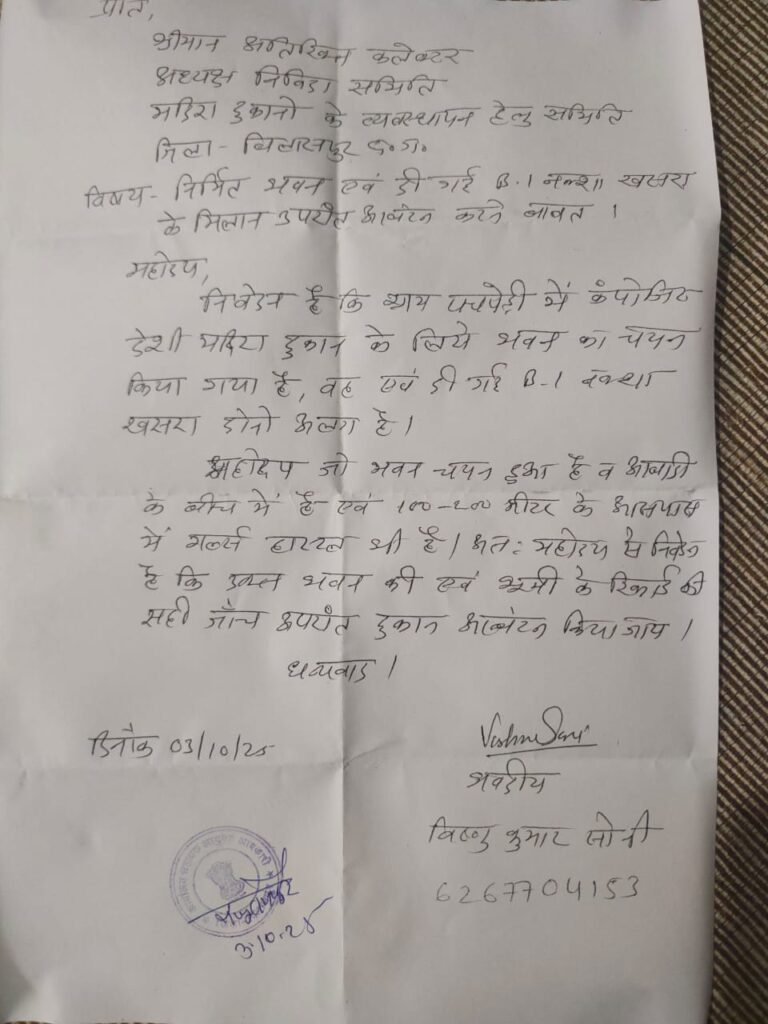 प्रति,
श्रीमान अतिरिक्त कलेक्टर
अध्यक्ष निविदा समिति
मदिरा दुकानो के व्यवस्थापन हेतु समिति
जिला - बिलासपुर छ.ग.
विषय - निर्मित भवन एवं दी गई B-1 नक्शा खसरा
के मिलान उपरांत आबंटन करने बाबत ।
महोदय,
निवेदन है कि ग्राम पचपेड़ी में कंपोजिट
देशी मदिरा दुकान के लिये भवन का चयन
किया गया है, वह एवं दी गई B-1 नक्शा
खसरा दोनो अलग है।
महोदय जो भवन चयन हुआ है व आबादी
के बीच में है एवं 100-200 मीटर के आसपास
में गर्ल्स हास्टल भी है। अत: महोदय से निवेदन
है कि उक्त भवन की एवं भूमी के रिकार्ड की
सही जाँच उपरांत दुकान आबंटन किया जाय ।
धन्यवाद ।
दिनाँक 03/10/25
भवदीय
विष्णु कुमार सोनी
6267704153
3.10.25